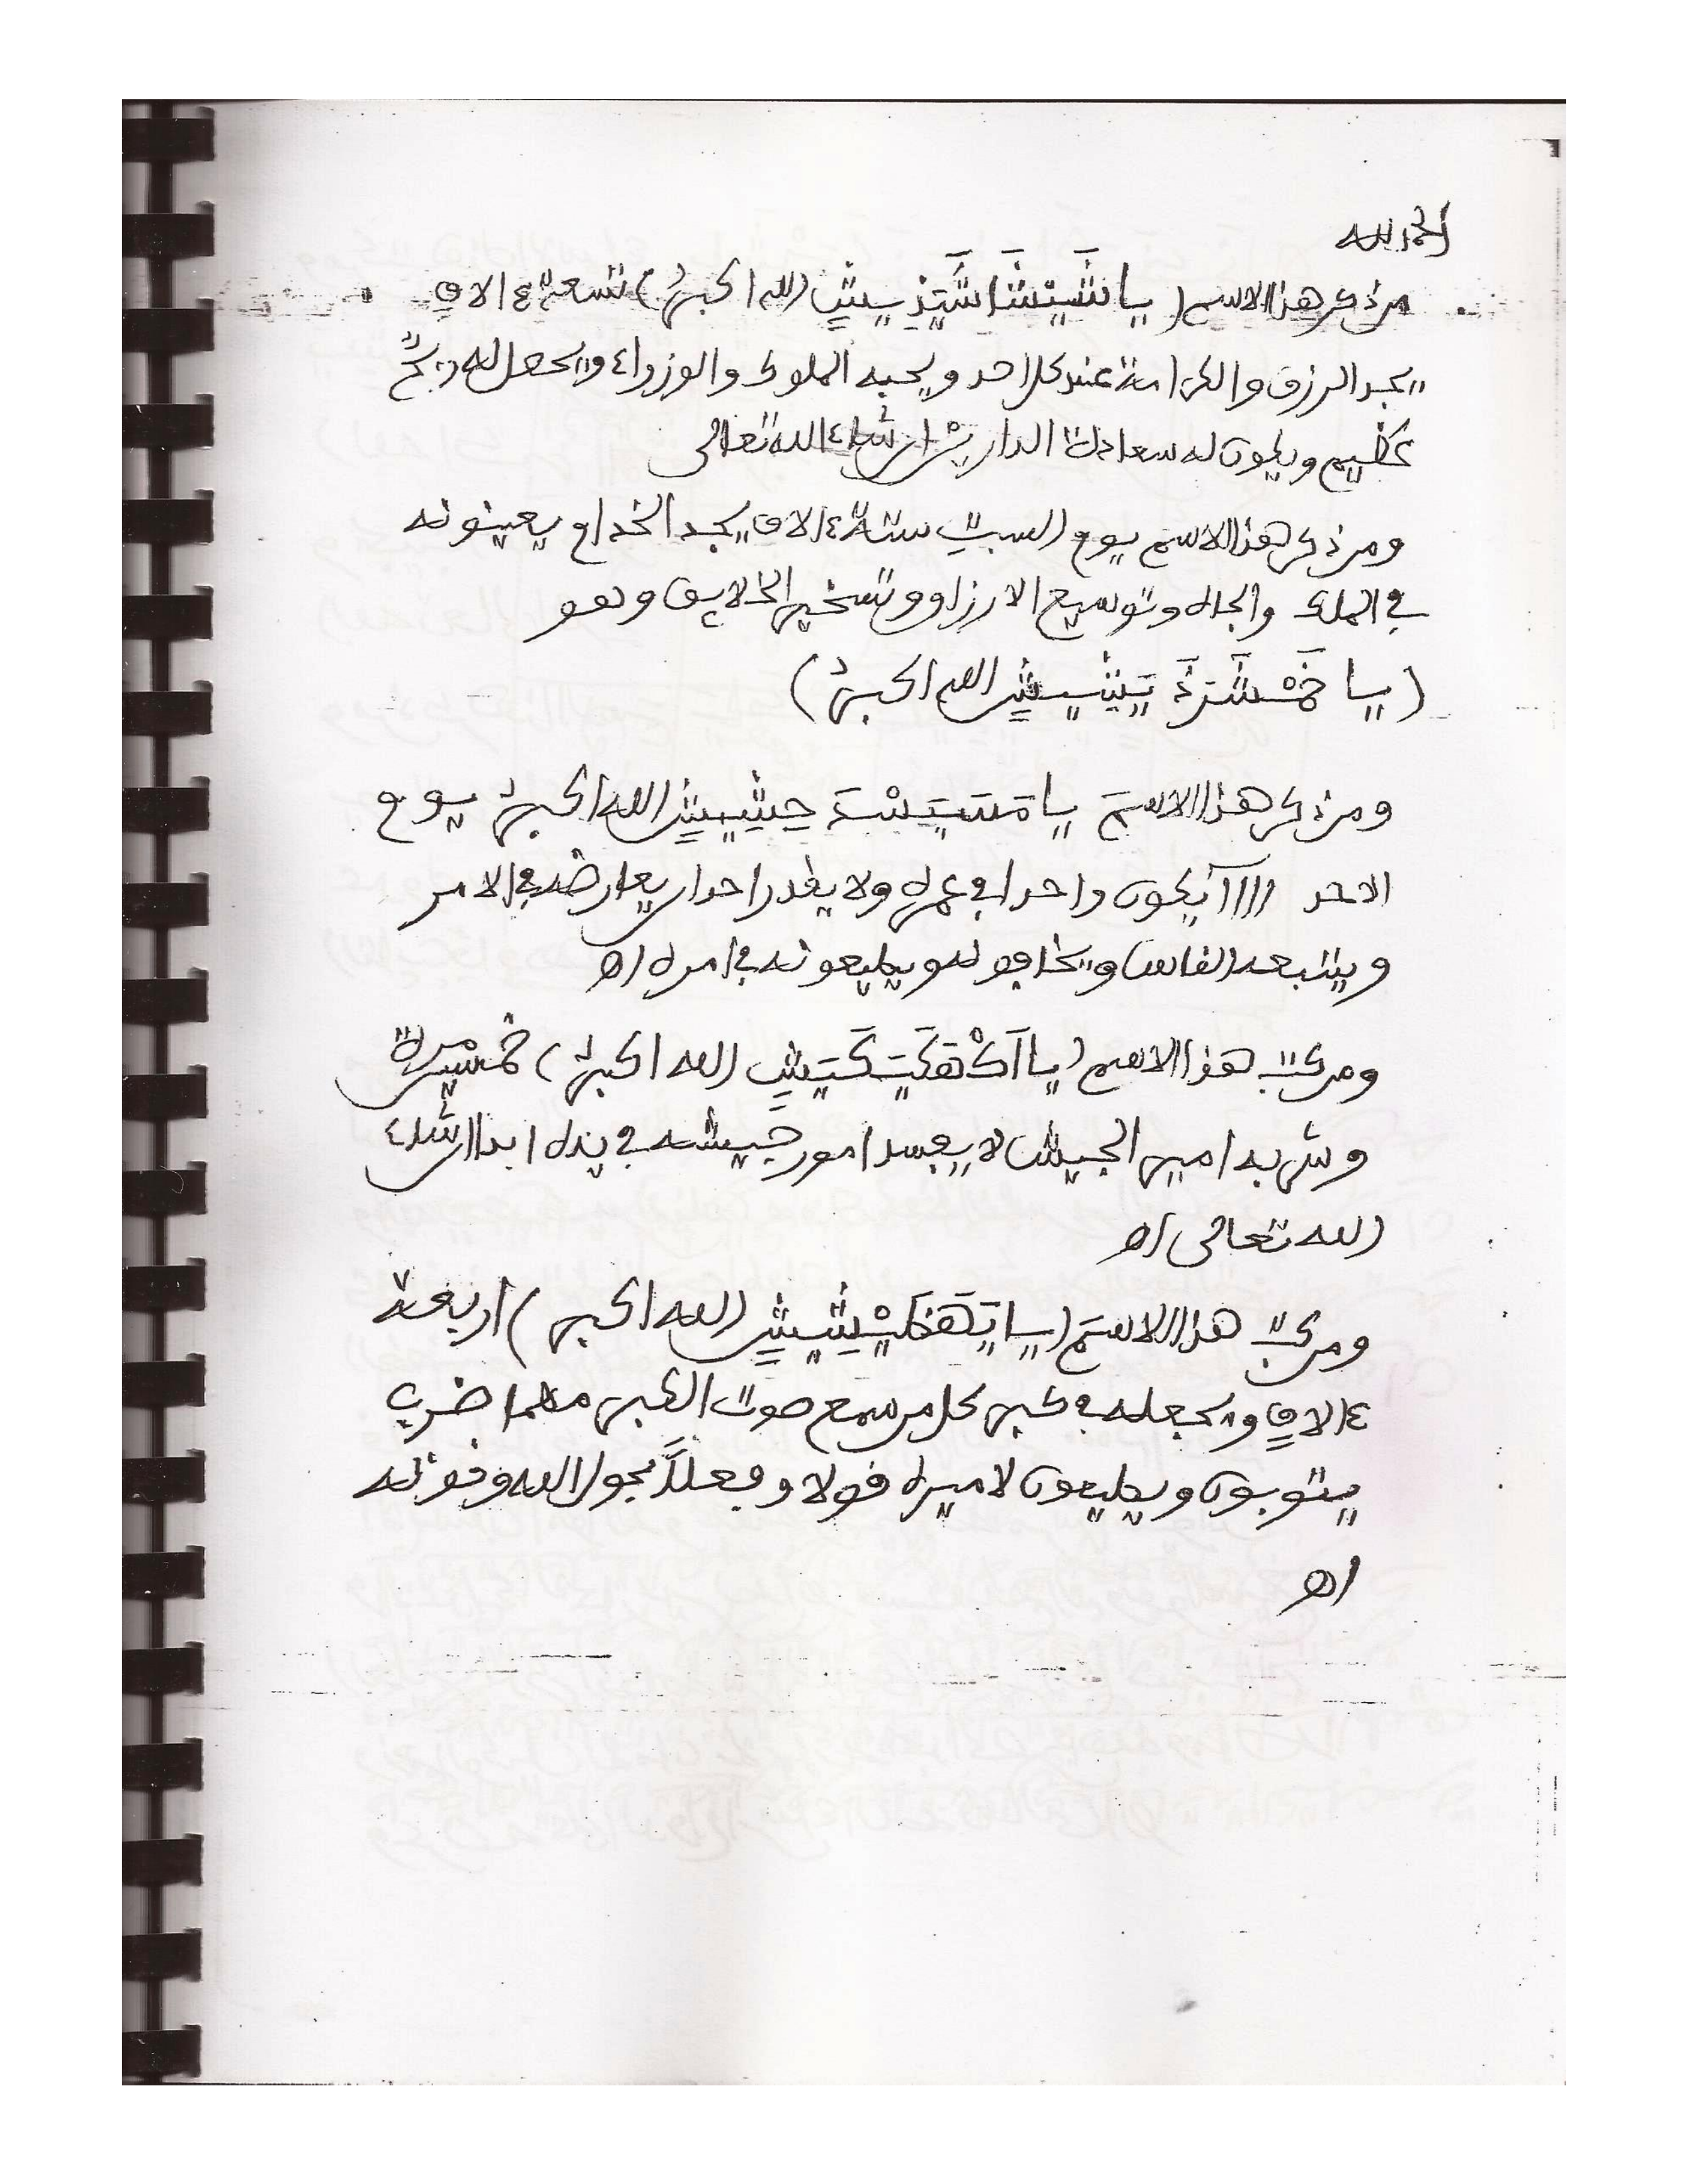 الحمد لله
من ذكر هذا الاسم (يا الله اكبر) تسعة ءالاف
يجد الرزق والكرامة عند كل احد ويحبه الملوك والوزراء ويجعل له
عظيم ويكون له سعادة الدارين ان شاء الله تعالى
ومن ذكر هذا الاسم يوم السبت ستة ءالاف يجد الخدام يعينونه
في الملك والجاه وتوسيع الارزاق وتسخير الخلايق وهو
(يا الله اكبر)
ومن ذكر هذا الاسم يا الله اكبر يوم
الاحد يكون واحدا في عمره ولا يقدر احد ان يعارضه في الامر
ويتبعه الناس ويخافونه ويطيعونه في امره اه
ومن كتب هذا الاسم (يا الله اكبر) خمسين مرة
وشربه امير الجيش لا يفسد امور جيشه في يده ابدا ان شاء
الله تعالى اه
ومن كتب هذا الاسم (يا الله اكبر) اربعة
ءالاف ويجعله في كبر كل من سمع صوت الكبر مهما ضرب
يتوبون ويطيعون لاميره قولا وفعلا بحول الله وقوته
اه